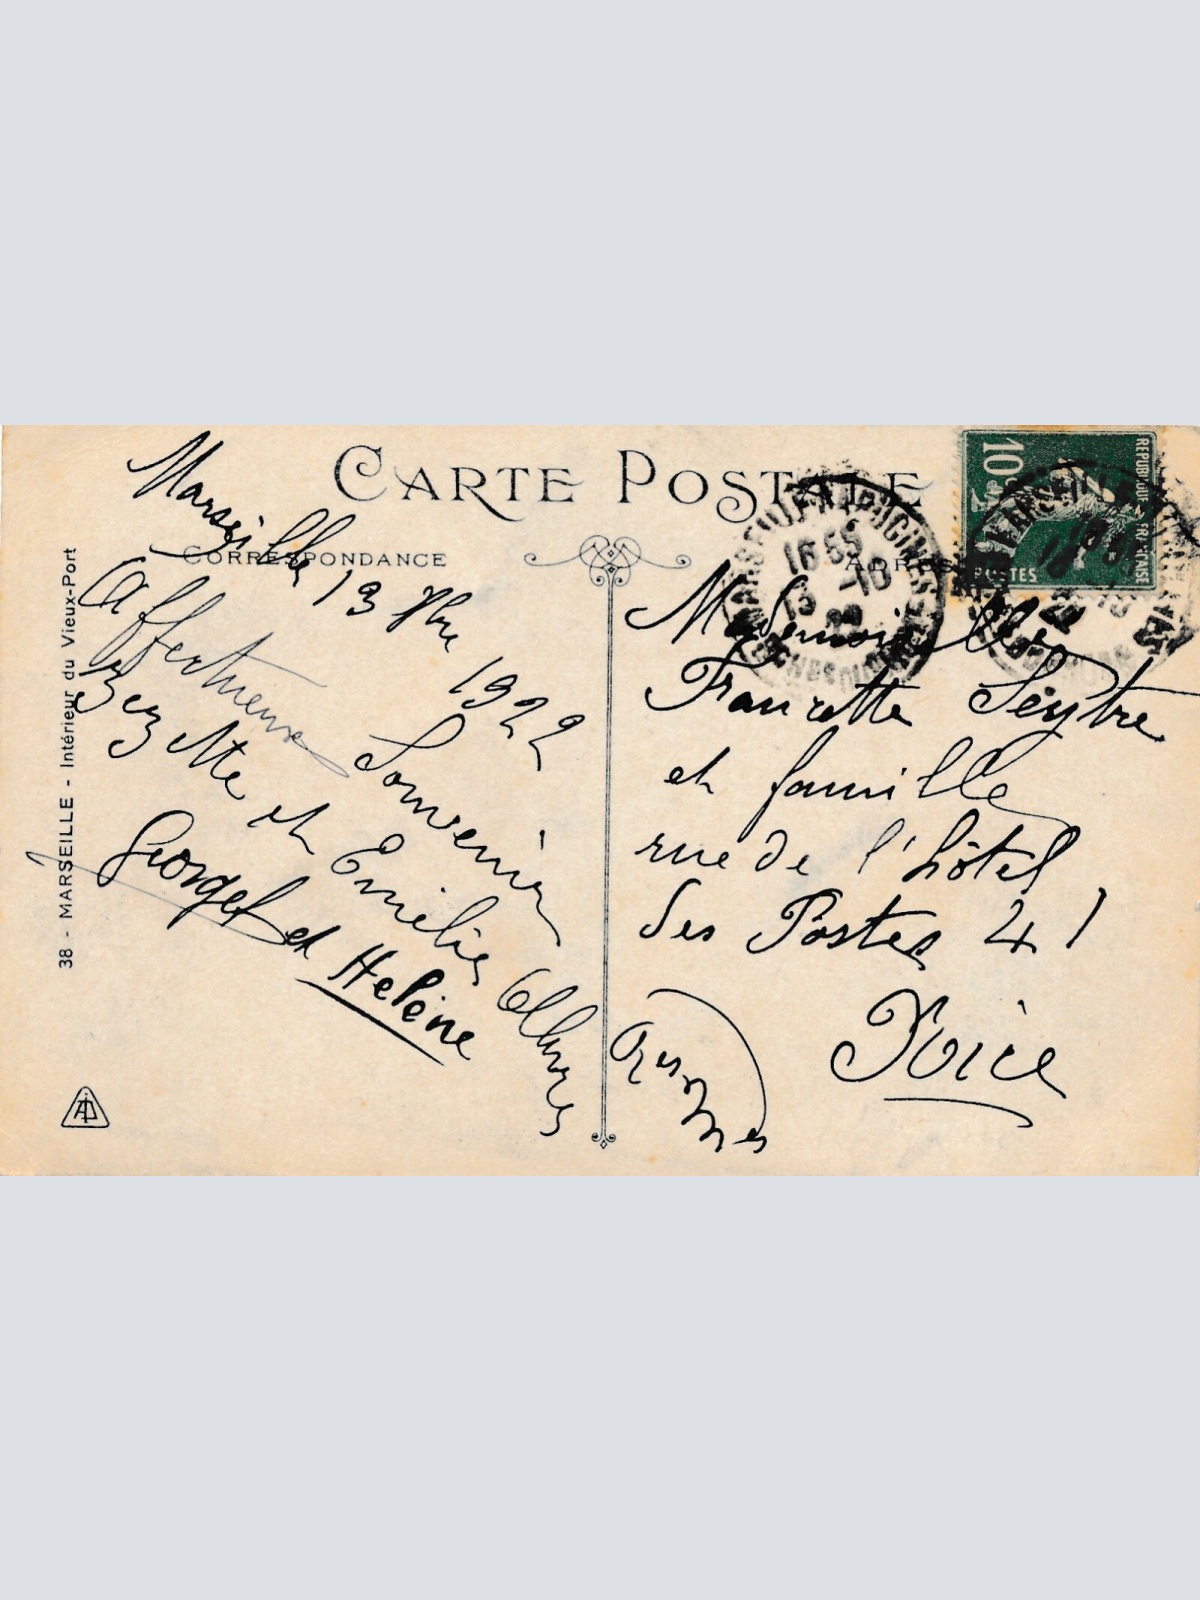 CARTE POSTALE
CORRESPONDANCE
ADRESSE
38 - MARSEILLE - Intérieur du Vieux-Port
Marseille 13 1922
Affectueux Souvenir
Zezette et Emilie
Georget et Helène
Mademoiselle
Francette Seytre
et famille
rue de l'hôtel
des Postes 41
Nice
10
REPUBLIQUE FRANÇAISE
POSTES
16 55
13 -10
22